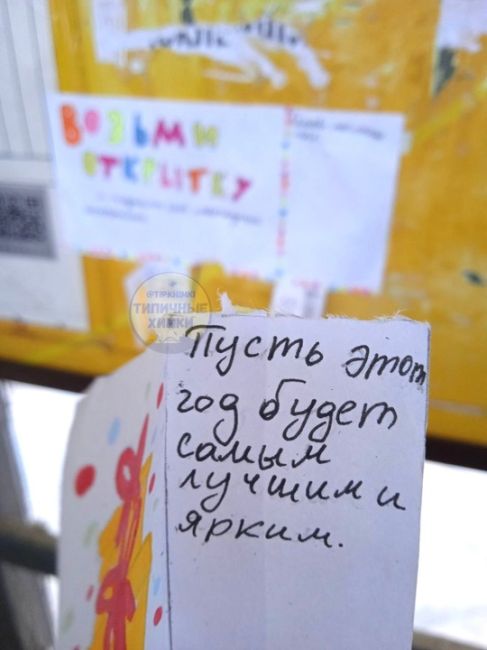 ВОЗЬМИ
ОТКРЫТКУ
@TIPKHIMKI
ТИПИЧНЫЕ
ХИМКИ
Пусть этот
год будет
самым
лучшим и
ярким.